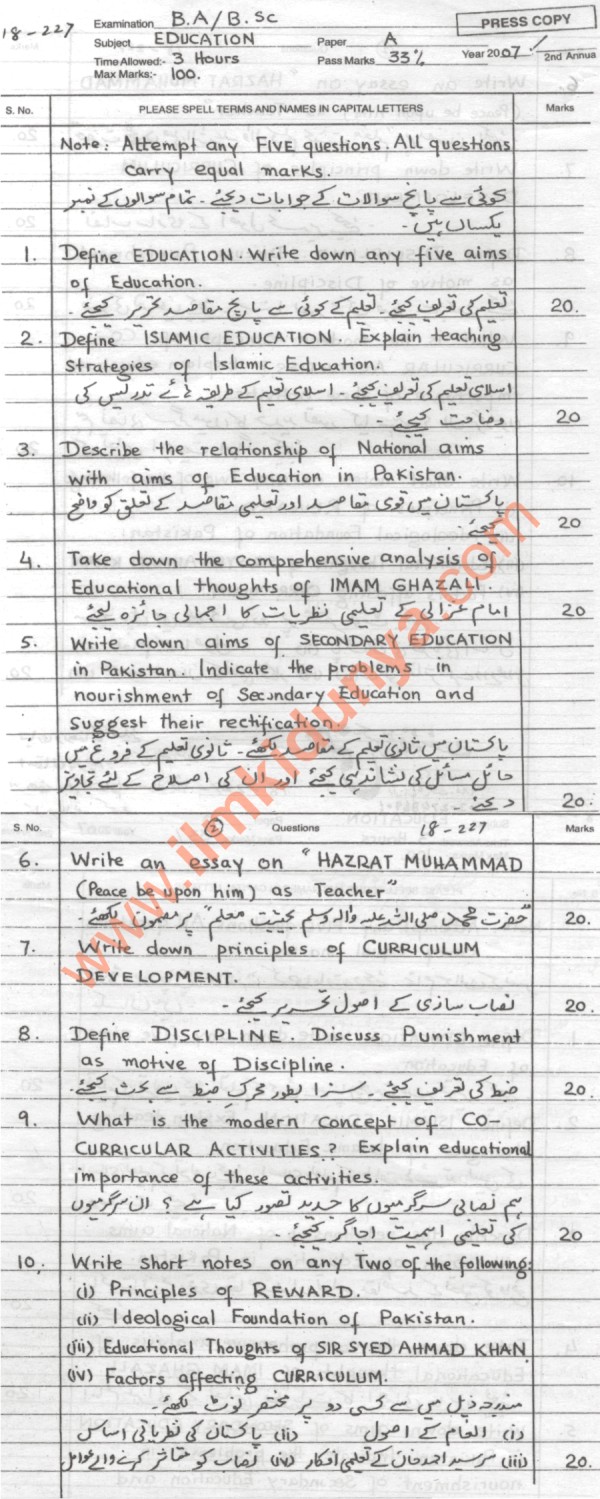 18-227
Examination B.A/B.Sc
PRESS COPY
Subject EDUCATION Paper A
Time Allowed:- 3 Hours Pass Marks 33% Year 2007 / 2nd Annua
Max Marks:- 100.
S. No. PLEASE SPELL TERMS AND NAMES IN CAPITAL LETTERS Marks
Note: Attempt any FIVE questions. All questions
carry equal marks.
کوئی سے پانچ سوالات کے جوابات دیجئے۔ تمام سوالوں کے نمبر
یکساں ہیں۔
1. Define EDUCATION. Write down any five aims
of Education.
تعلیم کی تعریف کیجئے۔ تعلیم کے کوئی سے پانچ مقاصد تحریر کیجئے۔ 20.
2. Define ISLAMIC EDUCATION. Explain teaching
Strategies of Islamic Education.
اسلامی تعلیم کی تعریف کیجئے۔ اسلامی تعلیم کے طریقہ ہائے تدریس کی
وضاحت کیجئے۔ 20
3. Describe the relationship of National aims
with aims of Education in Pakistan.
پاکستان میں قومی مقاصد اور تعلیمی مقاصد کے تعلق کو واضح
کیجئے۔ 20
4. Take down the comprehensive analysis of
Educational thoughts of IMAM GHAZALI.
امام غزالی کے تعلیمی نظریات کا اجمالی جائزہ لیجئے 20
5. Write down aims of SECONDARY EDUCATION
in Pakistan. Indicate the problems in
nourishment of Secondary Education and
Suggest their rectification.
پاکستان میں ثانوی تعلیم کے مقاصد لکھئے۔ ثانوی تعلیم کے فروغ میں
حائل مسائل کی نشاندہی کیجئے اور ان کی اصلاح کے لئے تجاویز
دیجئے 20.
S. No. (2) Questions 18-227 Marks
6. Write an essay on "HAZRAT MUHAMMAD
(Peace be upon him) as Teacher"
"حضرت محمد صلی اللہ علیہ وآلہ وسلم بحیثیت معلم" پر مضمون لکھئے۔ 20.
7. Write down principles of CURRICULUM
DEVELOPMENT.
نصاب سازی کے اصول تحریر کیجئے۔ 20.
8. Define DISCIPLINE. Discuss Punishment
as motive of Discipline.
ضبط کی تعریف کیجئے۔ سزا بطور محرک ضبط سے بحث کیجئے۔ 20.
9. What is the modern concept of CO-
CURRICULAR ACTIVITIES? Explain educational
importance of these activities.
ہم نصابی سرگرمیوں کا جدید تصور کیا ہے؟ ان سرگرمیوں
کی تعلیمی اہمیت اجاگر کیجئے۔ 20
10. Write short notes on any Two of the following:
(i) Principles of REWARD.
(ii) Ideological Foundation of Pakistan.
(iii) Educational Thoughts of SIR SYED AHMAD KHAN
(iv) Factors affecting CURRICULUM.
مندرجہ ذیل میں سے کسی دو پر مختصر نوٹ لکھئے۔
(i) انعام کے اصول (ii) پاکستان کی نظریاتی اساس
(iii) سرسید احمد خان کے تعلیمی افکار (iv) نصاب کو متاثر کرنے والے عوامل 20.
www.ilmkidunya.com